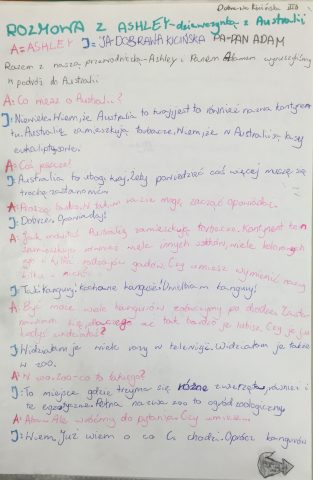 Dobrawa Kicińska III b
ROZMOWA Z ASHLEY-dziewczynką z Australii
A=ASHLEY J=JA DOBRAWA KICIŃSKA PA-PAN ADAM
Razem z naszą przewodniczką-Ashley i Panem Adamem wyruszyliśmy
w podróż do Australii
A: Co wiesz o Australii?
J: Niewiele. Wiem, że Australia to kraj, jest to również nazwa kontynen
tu. Australię zamieszkują tubylcze. Wiem, że w Australii są lasy
eukaliptusowe.
A: Coś jeszcze?
J: Australia to dłogi kraj. Żeby powiedzieć coś więcej muszę się
trochę zastanowić
A: Proszę bardzo. W takim razie mogę zacząć opowiadać.
J: Dobrze. Opowiadaj!
A: Jak mówiłaś Australię zamieszkują torbacze. Kontynent ten
zamieszkuje również wiele innych ssaków, wiele kolorowych
i kilka rodzajów gadów. Czy umiesz wymienić nazwy
kilku z nich?
J: Tak! Kangury! Kochane kangury! Uwielbiam kangury!
A: Być może wiele kangurów zobaczymy po drodze. Zasta-
nawiam się dlaczego aż tak bardzo je lubisz. Czy je już
kiedyś widziałaś?
J: Widziałam je wiele razy w telewizji. Widziałam je także
w zoo.
A: W zoo-zoo-co to takiego?
J: To miejsce gdzie trzyma się różne zwierzęta, również i
te egzotyczne. Pełna nazwa zoo to ogród zoologiczny
A: Aha. Ale wróćmy do pytania. Czy umiesz...
J: Wiem, Już wiem o co Ci chodzi. Oprócz kangurów